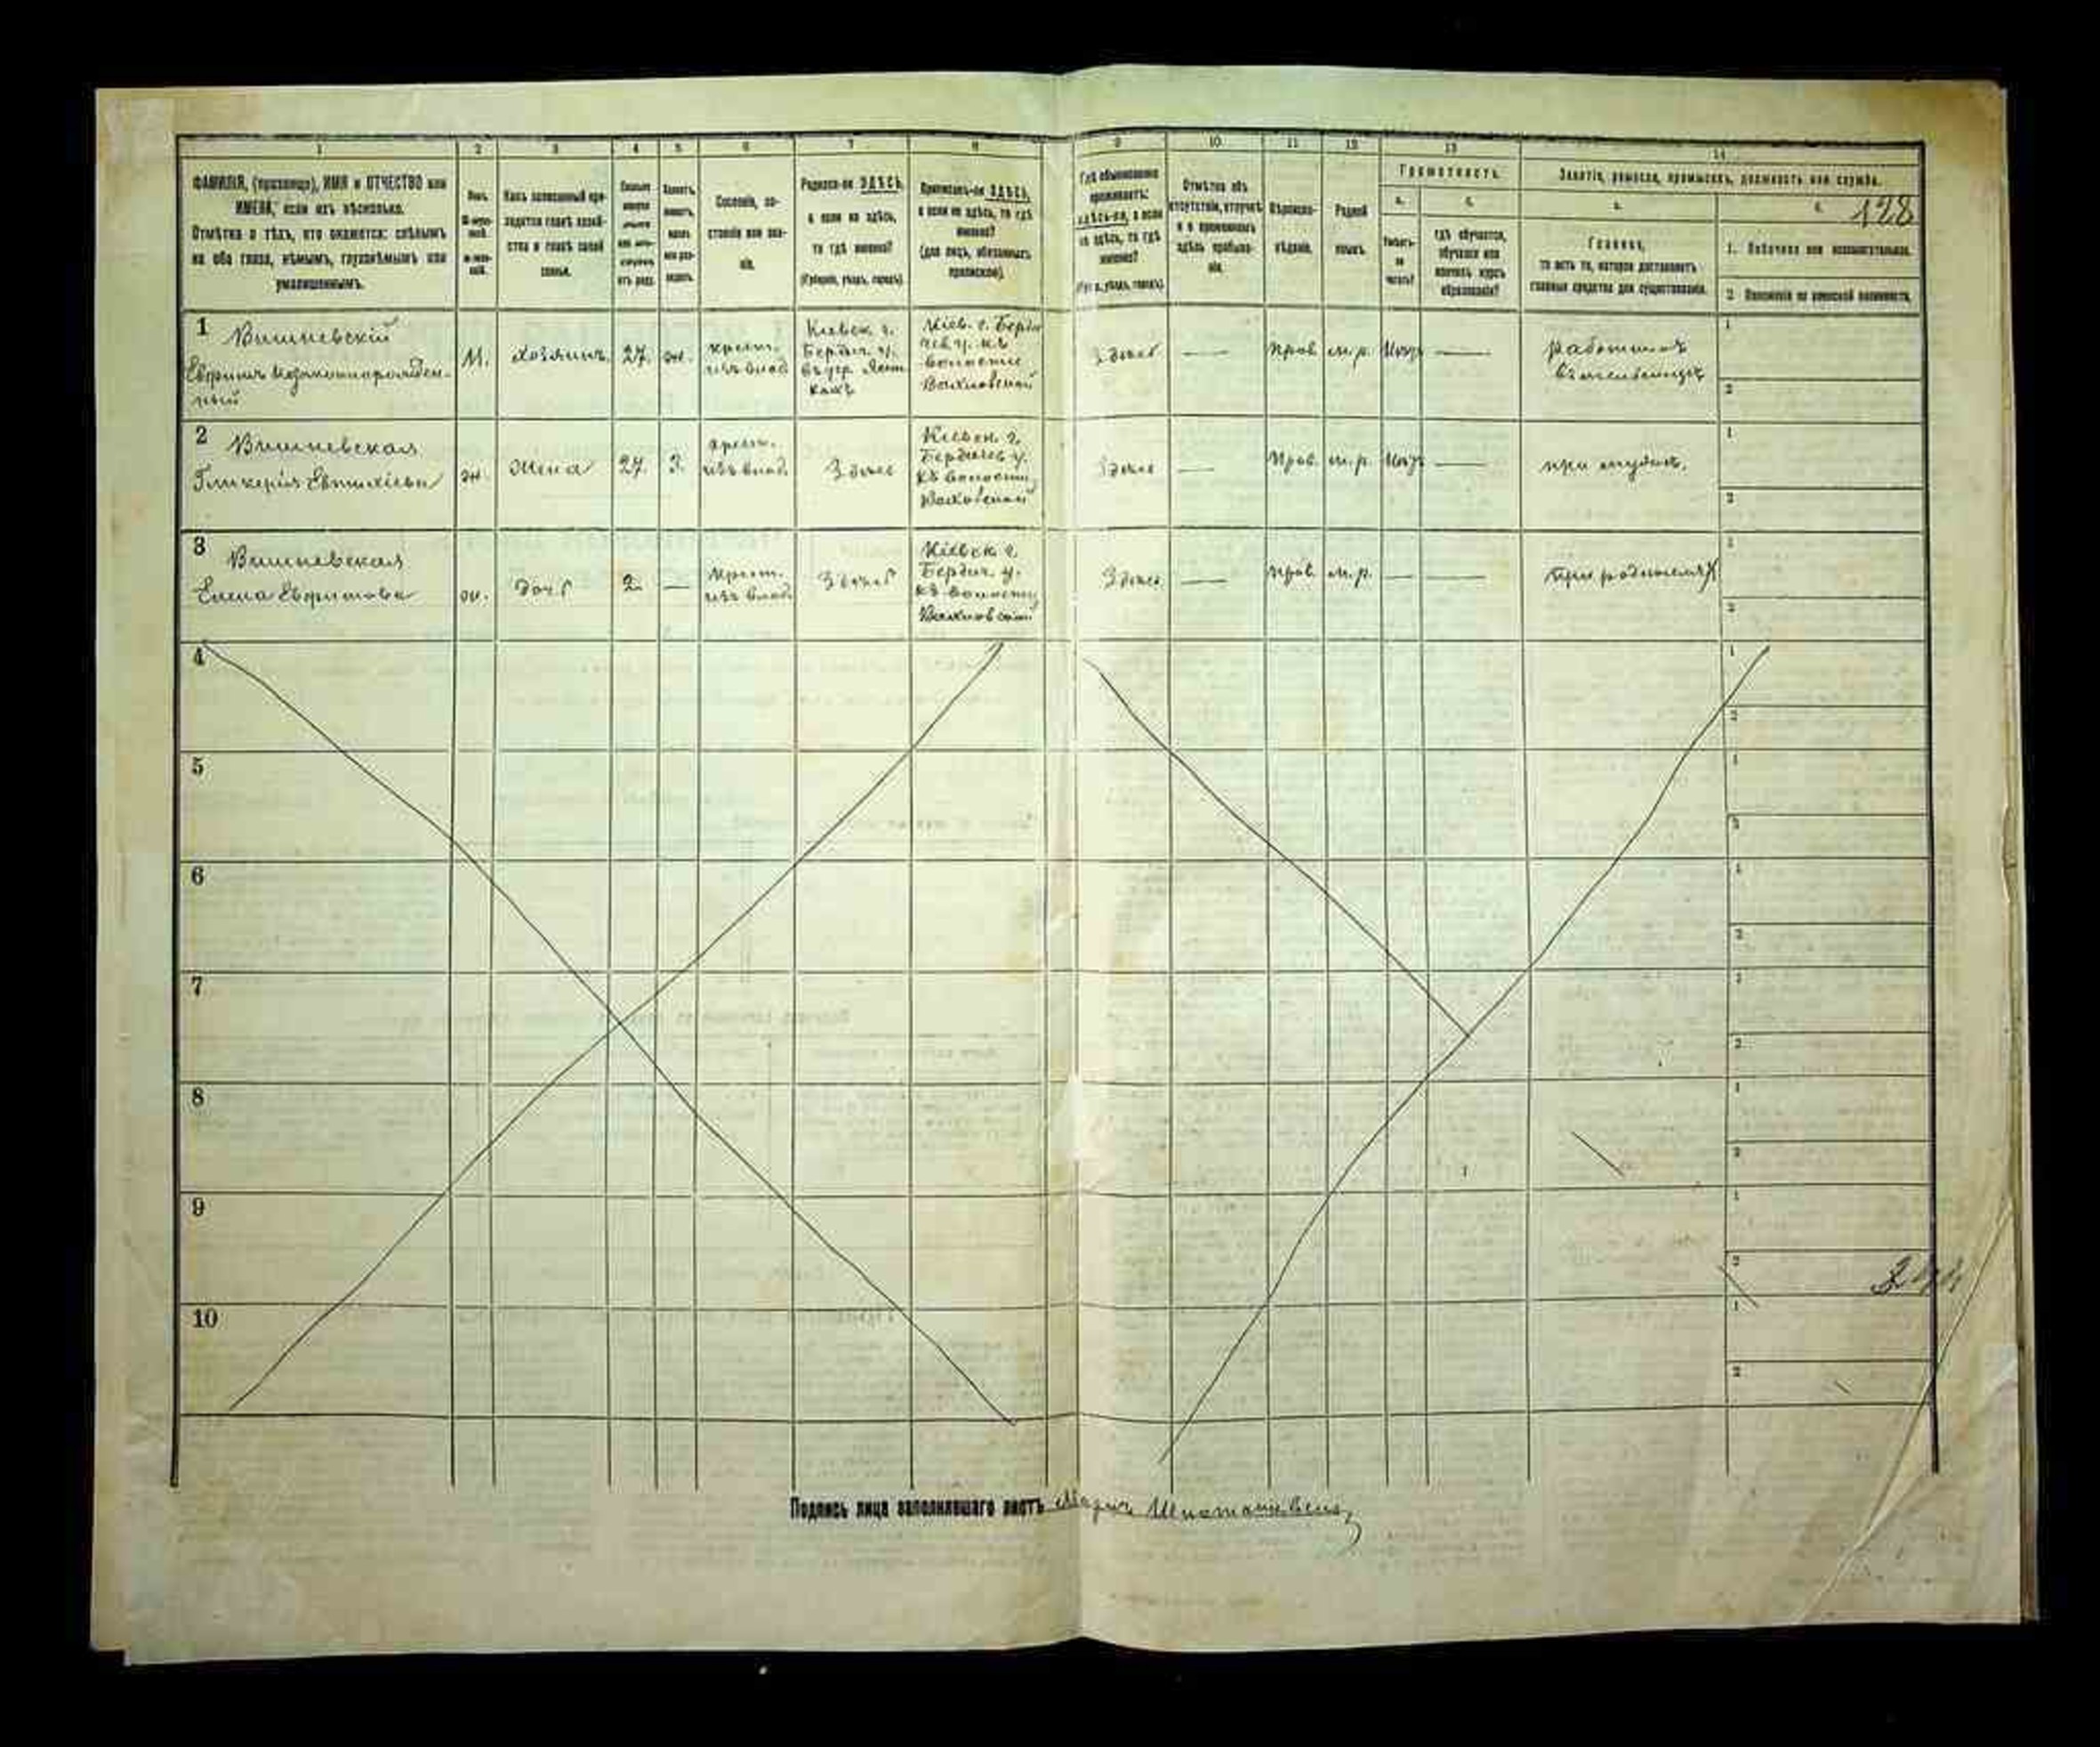 1 2 3 4 5 6 7 8 9 10 11 12 13 14
ФАМИЛІЯ, (прозвище), ИМЯ и ОТЧЕСТВО или
ИМЕНА, если ихъ нѣсколько.
Отмѣтка о тѣхъ, кто окажется: слѣпымъ
на оба глаза, нѣмымъ, глухонѣмымъ или
умалишеннымъ.
Полъ.
Какъ записанный при-
ходится главѣ хозяй-
ства и главѣ своей
семьи.
Сословіе, со-
стояніе или зва-
ніе.
Родился-ли ЗДѢСЬ,
а если не здѣсь,
то гдѣ именно?
(Губернія, уѣздъ, городъ).
Приписанъ-ли ЗДѢСЬ,
а если не здѣсь, то гдѣ
именно?
(для лицъ, обязанныхъ
припискою).
Гдѣ обыкновенно
проживаетъ:
здѣсь-ли, а если
не здѣсь, то гдѣ
именно?
Отмѣтка объ
отсутствіи, отлучкѣ
и о временномъ
здѣсь пребыва-
ніи.
Вѣроиспо-
вѣданіе.
Родной
языкъ.
Грамотность.
а.
Умѣетъ-
ли
читать?
б.
гдѣ обучается,
обучался или
кончилъ курсъ
образованія?
Занятіе, ремесло, промыселъ, должность или служба.
а.
Главное,
то есть то, которое доставляетъ
главныя средства для существованія.
б.
128
1. Побочное или вспомогательное.
2. Положеніе по воинской повинности.
1 Вишневскій
М. хозяинъ 27. ж. крест.
изъ влад.
Кіевск. г.
Бердич. у.
Кіев. г. Берди-
чев у. къ
волости
Вахновской
Здѣсь — прав. м. р. —
работникъ
1
2
2 Вишневская
Гликерія Евтихіева
ж. жена 27. З. крест.
изъ влад.
Здѣсь
Кіевск. г.
Бердичев у.
къ волости
Вахновской
Здѣсь — прав. м. р. —
при мужѣ.
1
2
3 Вишневская
Елена Ефимова
ж. дочь 2. — крест.
изъ влад.
Здѣсь
Кіевск. г.
Бердич. у.
къ волости
Вахновской
Здѣсь — прав. м. р. — —
при родителях
1
2
4 1
2
5 1
2
6 1
2
7 1
2
8 1
2
9 1
2
10 1
2
Подпись лица заполнявшаго листъ